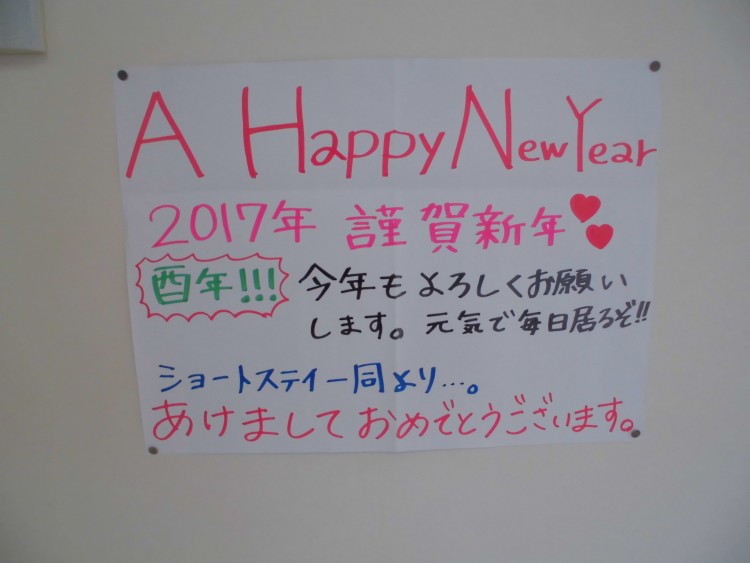 A Happy New Year
2017年 謹賀新年
酉年!!! 今年もよろしくお願い
します。元気で毎日居ろぞ!!
ショートステイ一同より…。
あけましておめでとうございます。